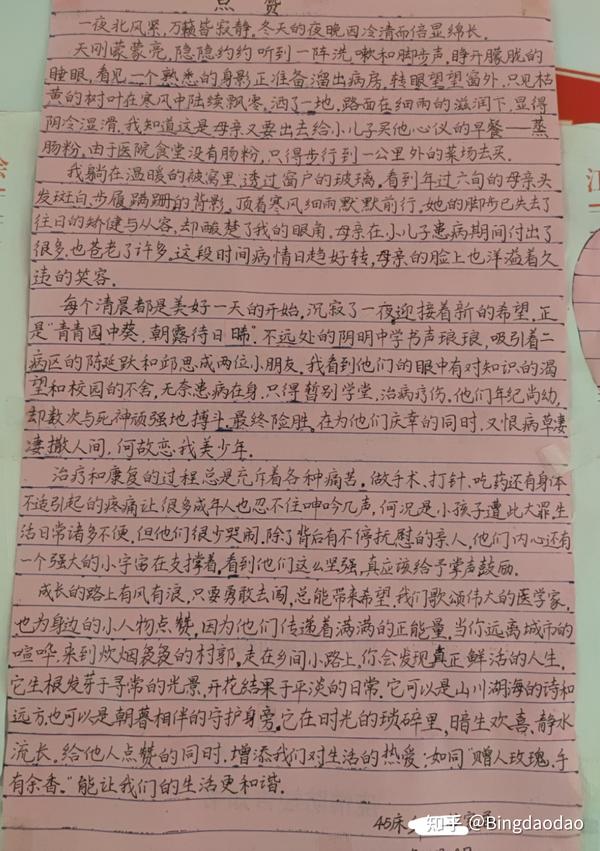 点赞
一夜北风紧,万籁皆寂静,冬天的夜晚因冷清而倍显绵长.
天刚蒙蒙亮,隐隐约约听到一阵洗漱和脚步声,睁开朦胧的
睡眼,看见一个熟悉的身影正准备溜出病房,转眼望望窗外,只见枯
黄的树叶在寒风中陆续飘零,洒了一地,路面在细雨的滋润下,显得
阴冷湿滑.我知道这是母亲又要出去给小儿子买他心仪的早餐——蒸
肠粉,由于医院食堂没有肠粉,只得步行到一公里外的菜场去买.
我躺在温暖的被窝里,透过窗户的玻璃,看到年过六旬的母亲头
发斑白,步履蹒跚的背影,顶着寒风细雨默默前行,她的脚步已失去了
往日的矫健与从容,却酸楚了我的眼角.母亲在小儿患病期间付出了
很多,也苍老了许多.这段时间病情日趋好转,母亲的脸上也洋溢着久
违的笑容.
每个清晨都是美好一天的开始,沉寂了一夜迎接着新的希望,正
是"青青园中葵,朝露待日晞".不远处的阴明中学书声琅琅,吸引着二
病区的陈延跃和邱思成两位小朋友,我看到他们的眼中有对知识的渴
望和校园的不舍,无奈患病在身,只得暂别学堂,治病疗伤.他们年纪尚幼,
却数次与死神顽强地搏斗,最终险胜.在为他们庆幸的同时,又恨病草凄
凄撒人间,何故恋我美少年.
治疗和康复的过程总是充斥着各种痛苦.做手术、打针、吃药还有身体
不适引起的疼痛让很多成年人也忍不住呻吟几声,何况是小孩子遭此大罪,生
活日常诸多不便,但他们很少哭闹.除了背后有不停抚慰的亲人,他们内心还有
一个强大的小宇宙在支撑着,看到他们这么坚强,真应该给予掌声鼓励.
成长的路上有风有浪,只要勇敢去闯,总能带来希望.我们歌颂伟大的医学家,
也为身边的小人物点赞,因为他们传递着满满的正能量.当你远离城市的
喧哗,来到炊烟袅袅的村郭,走在乡间小路上,你会发现真正鲜活的人生,
它生根发芽于寻常的光景,开花结果于平淡的日常.它可以是山川湖海的诗和
远方,也可以是朝暮相伴的守护身旁.它在时光的琐碎里,暗生欢喜,静水
流长.给他人点赞的同时,增添我们对生活的热爱;如同"赠人玫瑰,手
有余香."能让我们的生活更和谐.
45床
知乎 @Bingdaodao